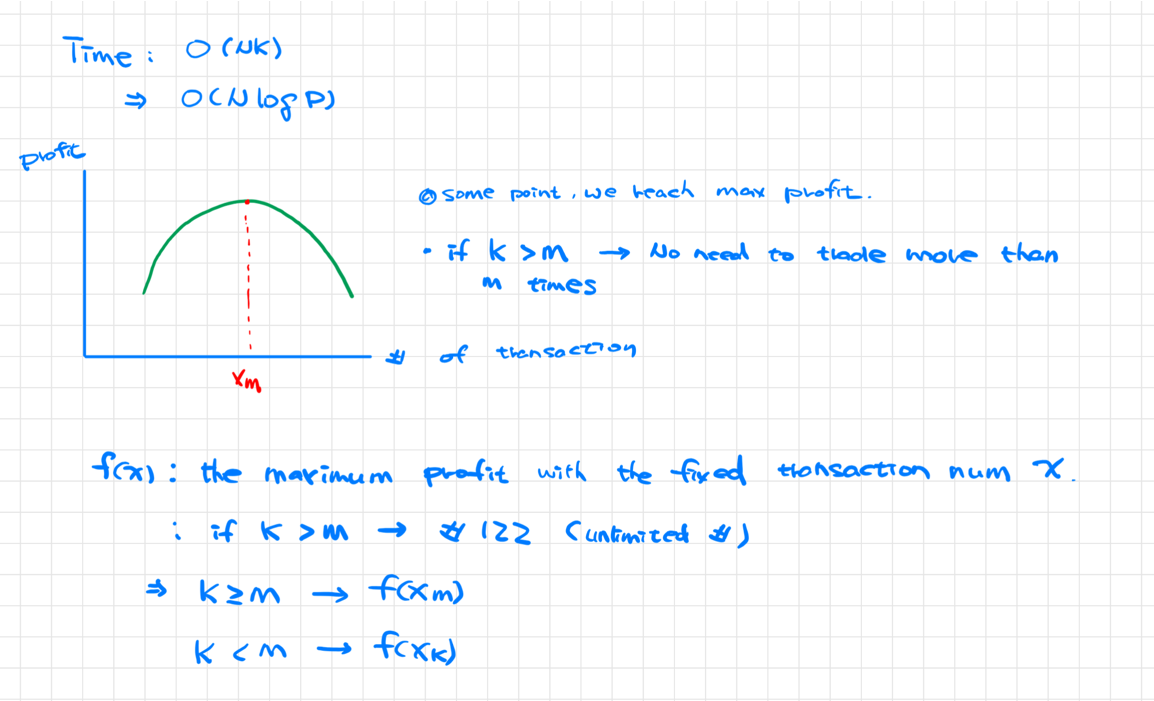 Time : O(NK)
⇒ O(N log P)
profit
@ some point, we reach max profit.
• if k > m → No need to trade more than
m times
# of transaction
xm
f(x) : the maximum profit with the fixed transaction num x.
: if k > m → #122 (unlimited #)
⇒ k ≥ m → f(xm)
k < m → f(xk)